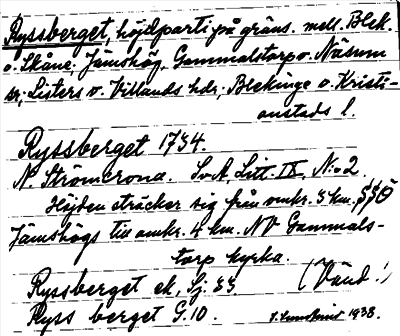 Ryssberget, höjdparti på gräns. mell. Blek.
o. Skåne. Jämshög, Gammalstorp o. Näsum
sn; Listers o. Villands hdr; Blekinge o. Kristi-
anstads l.
Ryssberget 1734.
N. Strömcrona. SvA, Litt. IX, N:o 2
Höjden sträcker sig från omkr. 5 km. SSÖ
Jämshögs till omkr. 4 km. NV Gammals-
torp kyrka.
Ryssberget ek, Sj. 33 (Vänd!)
Ryss berget G.10. 1938.